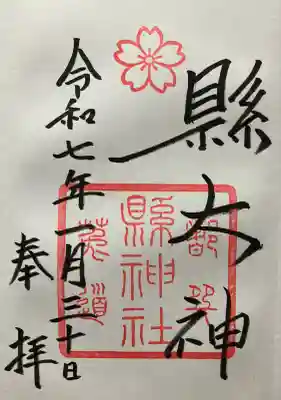 縣大神
奉拝
令和七年一月三十日
縣神社
菟道